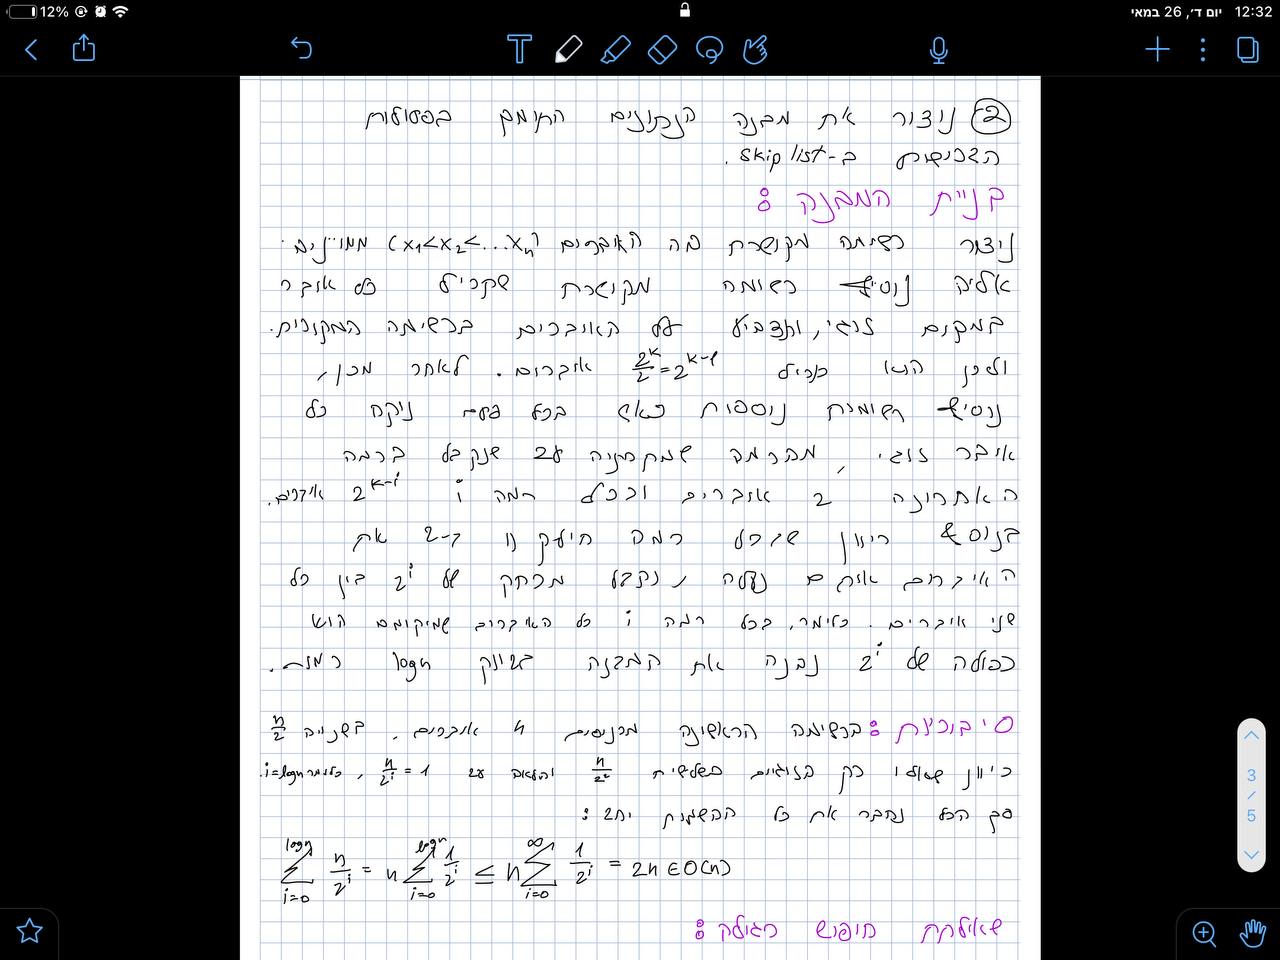 12:32 יום ד׳, 26 במאי 12%
② ניצור את מבנה הנתונים התומך בפעולות
הדרושות ב-skip list.
בניית המבנה:
ניצור רשימה מקושרת מה האיברים (x₁<x₂<...xₙ) ממויינים.
אליה נוסיף רשימה מקושרת שתכיל כל איבר
במקום זוגי, ותצביע על האיברים ברשימה המקורית.
ולכן היא תכיל 2^k/2 = 2^(k-1) איברים. לאחר מכן,
נוסיף רשימות נוספות כאשר בכל פעם ניקח כל
איבר זוגי, מהרמה שמתחתיה עד שנקבל ברמה
האחרונה 2 איברים ובכל רמה i 2^(k-i) איברים.
בנוסף כיוון שבכל רמה חילקנו ב-2 את
האיברים אותם נעלה, נקבל מרחק של 2^i בין כל
שני איברים. כלומר, בכל רמה i כל האיברים שמיקומם הוא
כפולה של 2^i נבנה את המבנה logn רמות.
סיבוכיות: ברשימה הראשונה מכניסים n איברים, בשנייה n/2
כיוון שאלו רק הזוגיים בשלישית n/2² והלאה עד n/2^i = 1, כלומר i=logn.
סך הכל נחבר את כל הרשימות יחד:
∑_{i=0}^{logn} n/2^i = n∑_{i=0}^{logn} 1/2^i ≤ n∑_{i=0}^{∞} 1/2^i = 2n ∈ O(n)
שאילתת חיפוש רגילה:
3
/
5